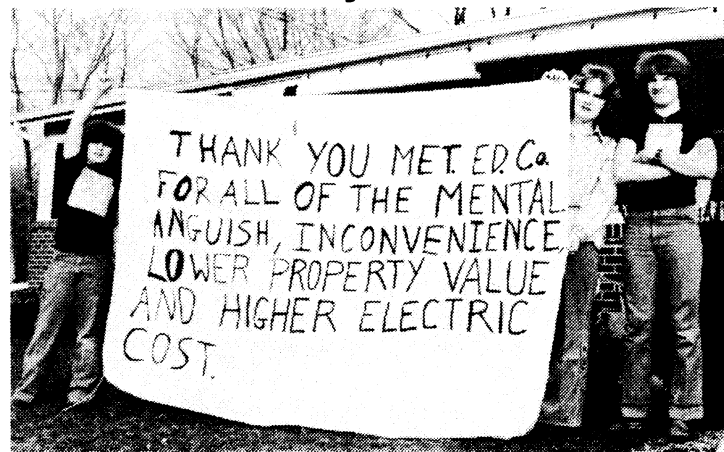 THANK YOU MET. ED. Co.
FOR ALL OF THE MENTAL
ANGUISH, INCONVENIENCE,
LOWER PROPERTY VALUE
AND HIGHER ELECTRIC
COST.